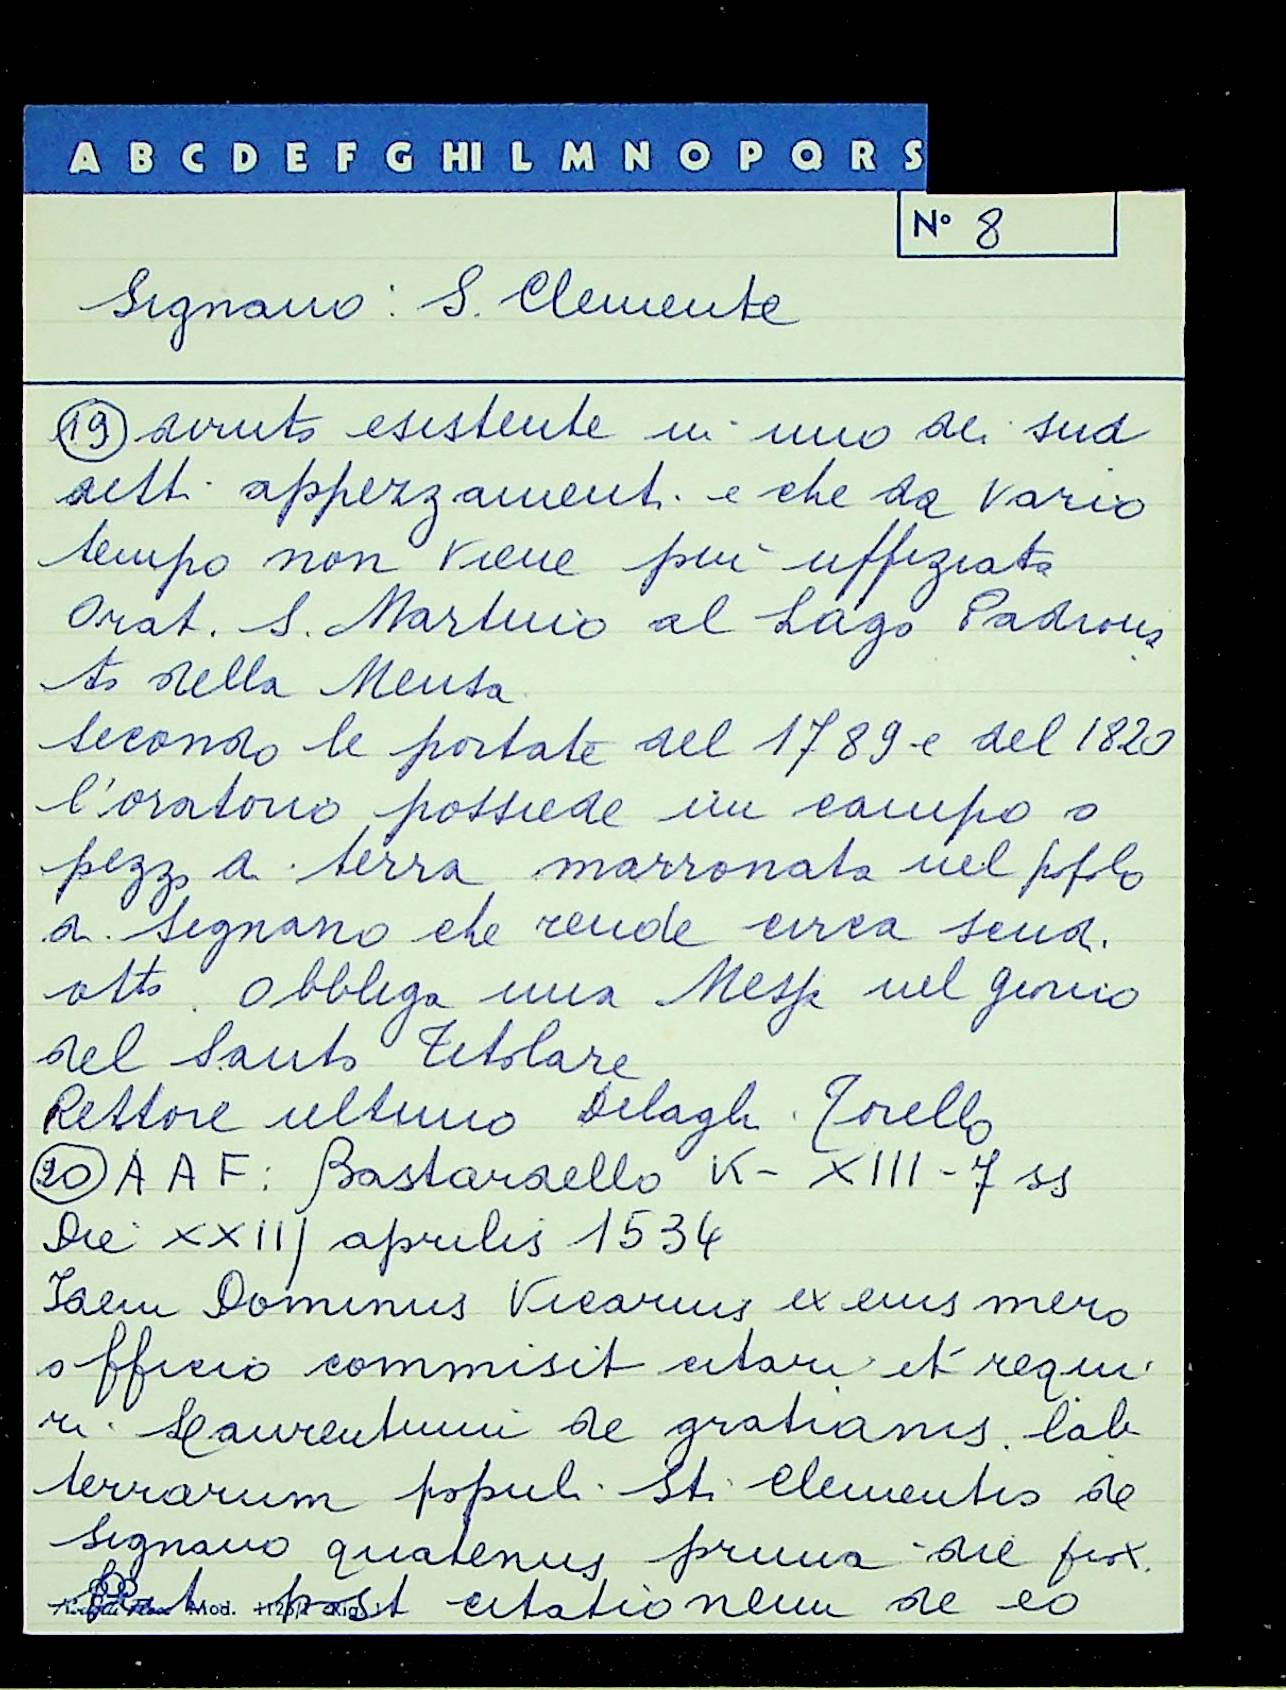 A B C D E F G HI L M N O P Q R S
N° 8
Signano: S. Clemente
19 diruto esistente in uno dei sud
detti appezzamenti e che da vario
tempo non viene più uffiziato
Orat. S. Martino al Lago Padrona
to della Mensa
Secondo le portate del 1789 e del 1820
l'oratorio possiede un campo o
pezzo di terra marronata nel popolo
di Signano che rende circa scudi
otto. Obbliga una Messa nel giorno
del Santo Titolare
Rettore ultimo Torello
20 A A F: Bastardello K - XIII - 7 ss
Die XXIIJ aprilis 1534
Idem Dominus Vicarius ex eius mero
officio commisit citari et requi
ri Laurentium de gratianis lab
terrarum populi Sti Clementis de
Signano quatenus prima die
post citationem de eo
Mod.